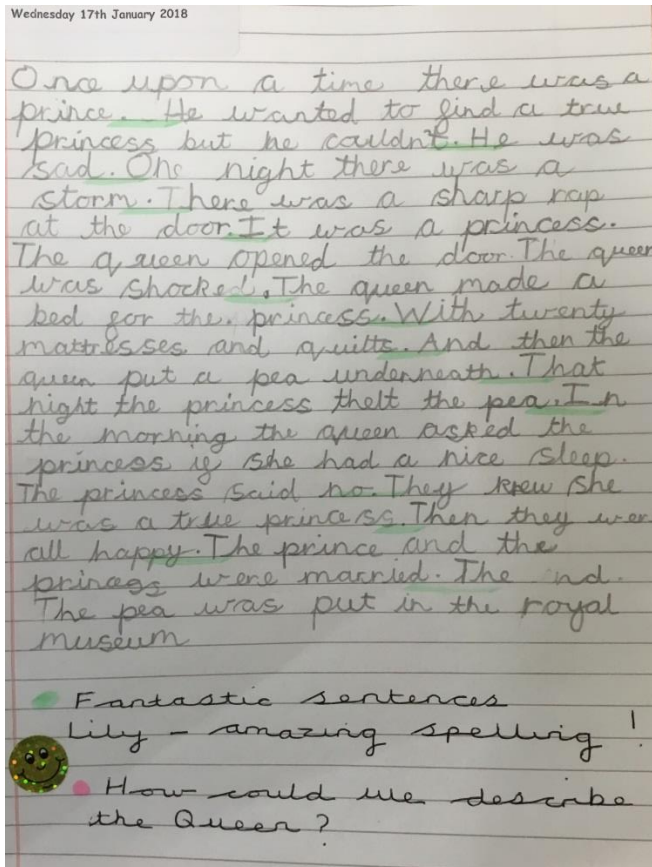 Wednesday 17th January 2018
Once upon a time there was a
prince. He wanted to find a true
princess but he couldn't. He was
sad. One night there was a
storm. There was a sharp rap
at the door. It was a princess.
The queen opened the door. The queen
was shocked. The queen made a
bed for the princess. With twenty
mattresses and quilts. And then the
queen put a pea underneath. That
night the princess thelt the pea. In
the morning the queen asked the
princess if she had a nice sleep.
The princess said no. They knew she
was a true princess. Then they wer
all happy. The prince and the
princess were married. The nd.
The pea was put in the royal
museum
Fantastic sentences
Lily - amazing spelling!
How could we describe
the Queen?